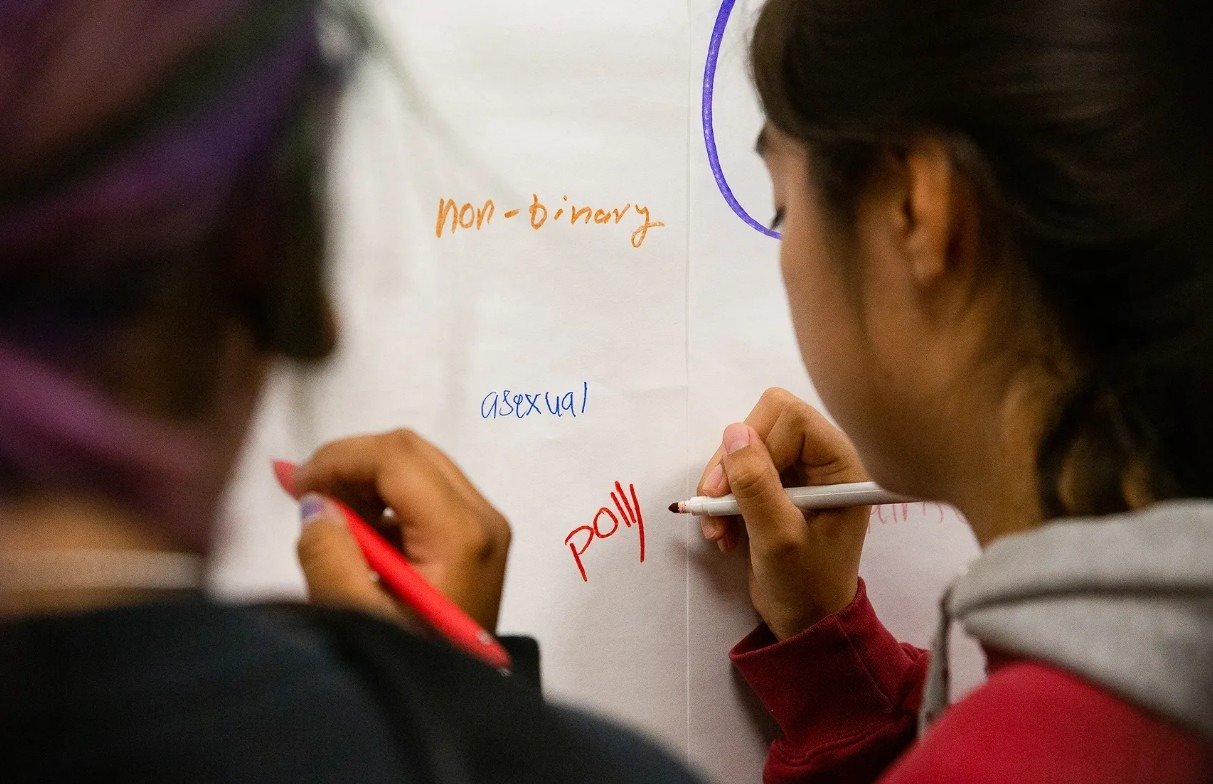 non-binary
asexual
polly